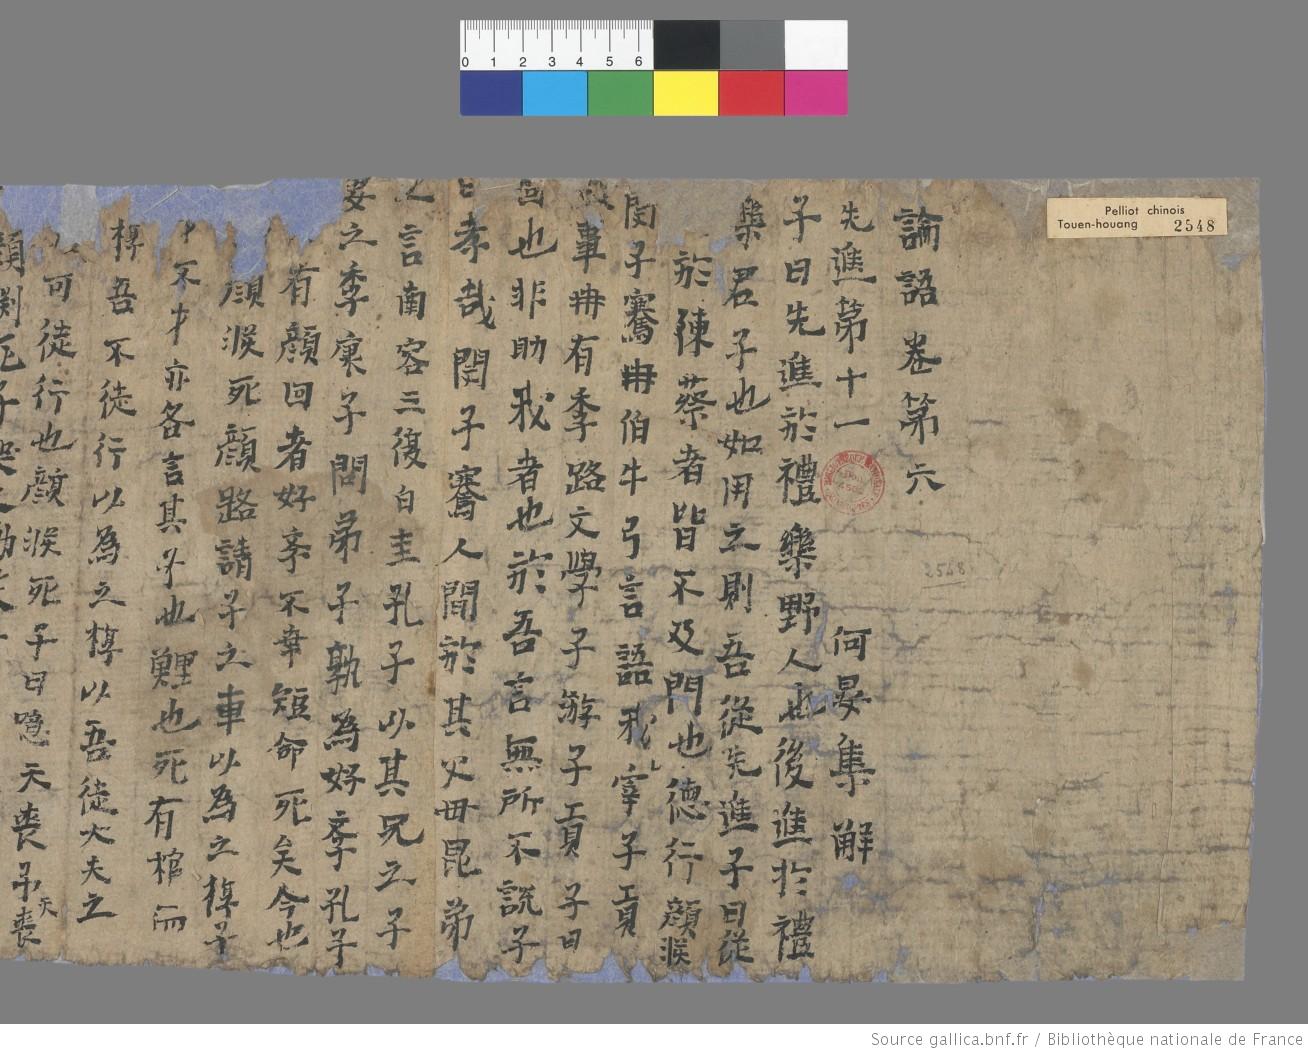 Pelliot chinois
Touen-houang 2548
0 1 2 3 4 5 6
論語卷第六
先進第十一 何晏集解
子曰先進於禮樂野人也後進於禮
樂君子也如用之則吾從先進子曰從
於陳蔡者皆不及門也德行顏淵
閔子騫冉伯牛弓言語我宰子貢
事冉有季路文學子游子貢子曰
回也非助我者也於吾言無所不說子
曰孝哉閔子騫人間於其父母昆弟
之言南容三復白圭孔子以其兄之子
妻之季康子問弟子孰為好孝孔子
有顏回者好孝不幸短命死矣今也
顏淵死顏路請子之車以為之椁子
不才亦各言其子也鯉也死有棺而
椁吾不徒行以為之椁以吾徒大夫之
可徒行也顏淵死子曰噫天喪予天喪
顏淵死子哭之慟
2548
Source gallica.bnf.fr / Bibliothèque nationale de France